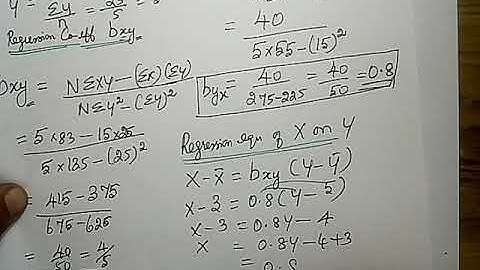 ȳ = Σy/n = 25/5 =
Regression Coeff bxy
bxy = NΣxy – (Σx)(Σy) / NΣy² – (Σy)²
= 5×83 – 15×25 / 5×135 – (25)²
= 415 – 375 / 675 – 625
= 40/50 = 4/5
= 40 / 5×55 – (15)²
byx = 40 / 275–225 = 40/50 = 0.8
Regression equn of X on Y
X – x̄ = bxy (Y – ȳ)
X – 3 = 0.8(Y – 5)
X – 3 = 0.8Y – 4
X = 0.8Y – 4 + 3
=